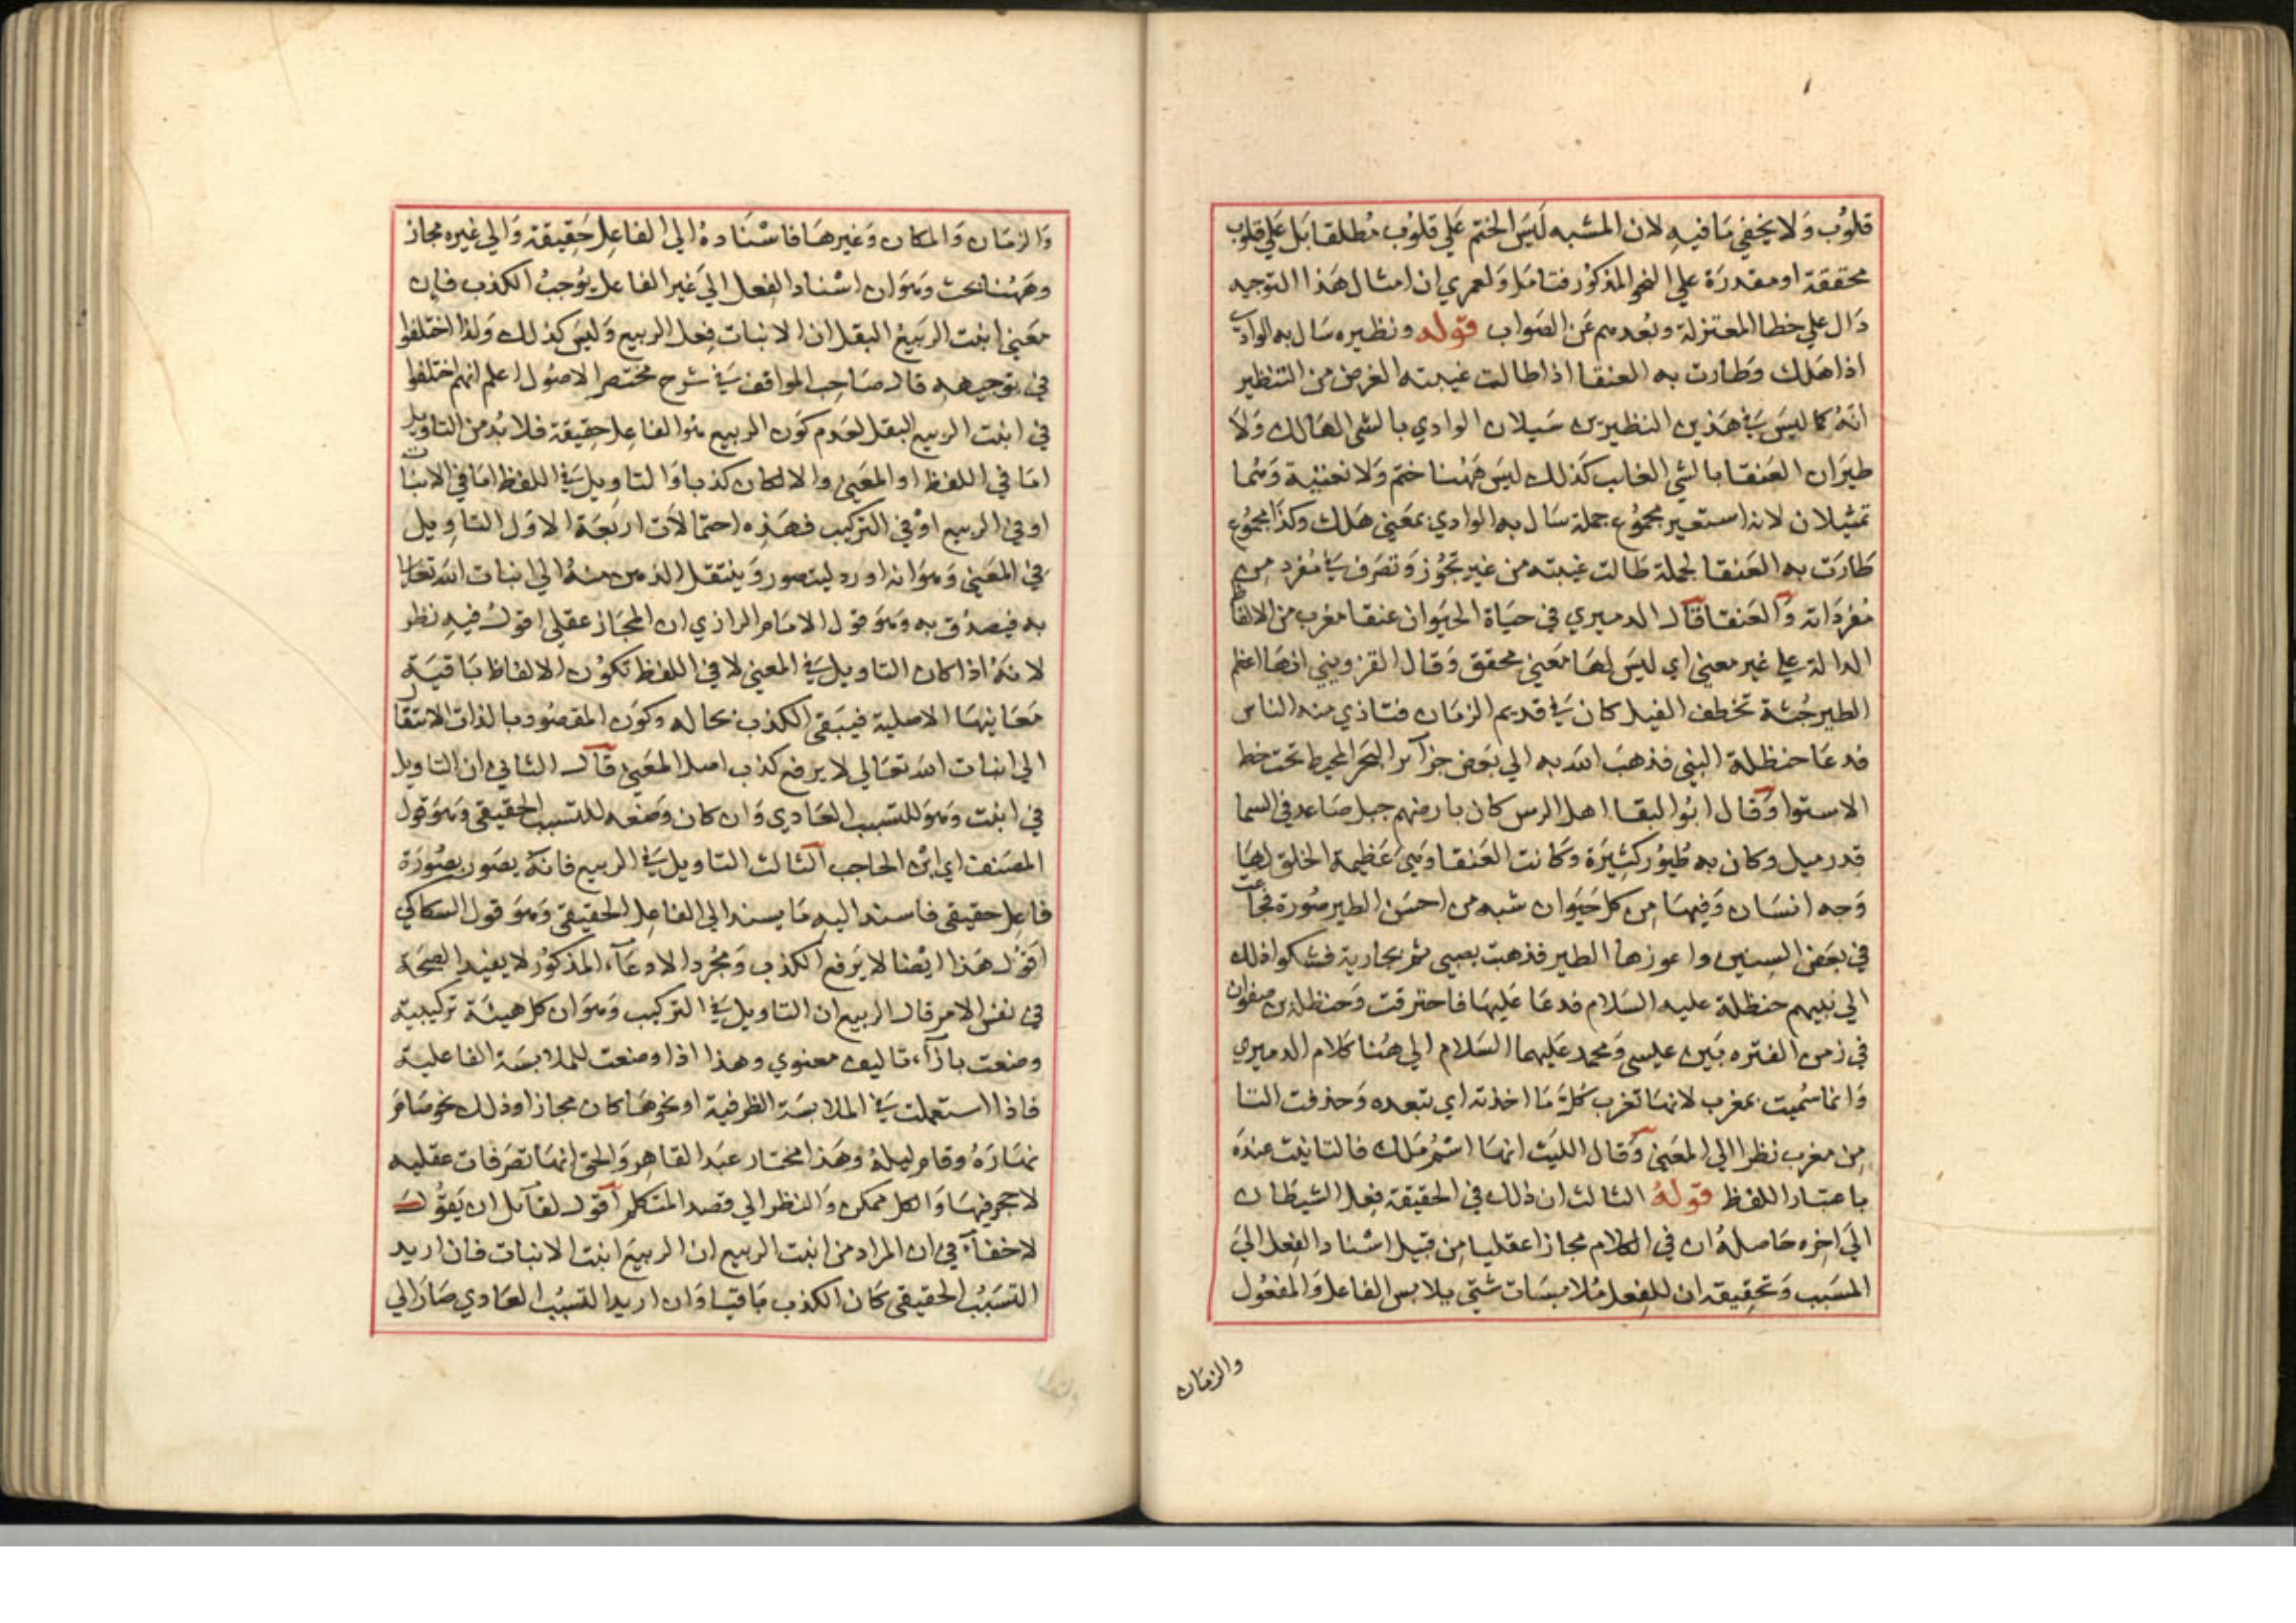 قلوب ولا يخفي ما فيه لان المشبه ليس الختم علي قلوب مطلقا بل علي قلوب
محققة او مقدرة علي النحو المذكور فتامل ولعمري ان امثال هذا التوجيه
دال علي خطا المعتزلة وبعدهم عن الصواب قوله ونظيره سال به الوادي
اذا هلك وطارت به العنقا اذا طالت غيبته الغرض من التنظير
انه كما ليس في هذين النظيرين سيلان الوادي بالشي الهالك ولا
طيران العنقا بالشي الغايب كذلك ليس ههنا ختم ولا تغشية وهما
تمثيلان لانه استعير مجموع جملة سال به الوادي بمعني هلك وكذا مجموع
طارت به العنقا لجملة طالت غيبته من غير تجوز وتصرف في مفرد من
مفرداته والعنقا قال الدميري في حياة الحيوان عنقا مغرب من الالفاظ
الدالة علي غير معني اي ليس لها معني محقق وقال القزويني انها اعظم
الطير جثة تخطف الفيل كان في قديم الزمان فتاذي منه الناس
فدعا حنظلة النبي فذهب الله به الي بعض جزاير البحر المحيط تحت خط
الاستوا وقال ابو البقا اهل الرس كان بارضهم جبل صاعد في السما
قدر ميل وكان به طيور كثيرة وكانت العنقا وهي عظيمة الخلق لها
وجه انسان وفيها من كل حيوان شبه من احسن الطير صورة فجاعت
في بعض السنين واعوزها الطير فذهبت بصبي ثم بجارية فشكوا ذلك
الي نبيهم حنظلة عليه السلام فدعا عليها فاحترقت وحنظلة بن صفوان
في زمن الفتره بين عيسي ومحمد عليهما السلام الي هنا كلام الدميري
وانما سميت بمغرب لانها تغرب كل ما اخذته اي تبعده وحذفت التا
من مغرب نظرا الي المعني وقال الليث انها اسم ملك فالتانيث عنده
باعتبار اللفظ قوله الثالث ان ذلك في الحقيقة فعل الشيطان
الي اخره حاصله ان في الكلام مجازا عقليا من قبيل اسناد الفعل الي
المسبب وتحقيقه ان للفعل ملابسات شتي يلابس الفاعل والمفعول
والزمان
والزمان والمكان وغيرها فاسناده الي الفاعل حقيقة والي غيره مجاز
وههنا بحث وهو ان اسناد الفعل الي غير الفاعل يوجب الكذب فان
معني انبت الربيع البقل ان الانبات فعل الربيع وليس كذلك ولذا اختلفوا
في توجيهه قال صاحب المواقف في شرح مختصر الاصول اعلم انهم اختلفوا
في انبت الربيع البقل لعدم كون الربيع هو الفاعل حقيقة فلا بد من التاويل
اما في اللفظ او المعني والا لكان كذبا والتاويل في اللفظ اما في الانبات
او في الربيع او في التركيب فهذه احتمالات اربعة الاول التاويل
في المعني وهو انه اورد ليتصور وينتقل الذهن منه الي انبات الله تعالي
به فيصدق به وهو قول الامام الرازي ان المجاز عقلي اقول فيه نظر
لانه اذا كان التاويل في المعني لا في اللفظ تكون الالفاظ باقية
معانيها الاصلية فيبقي الكذب بحاله وكون المقصود بالذات الانتقال
الي انبات الله تعالي لا يرفع كذب اصل المعني قال الثاني ان التاويل
في انبت وهو للتسبب العادي وان كان وضعه للتسبب الحقيقي وهو قول
المصنف اي ابن الحاجب الثالث التاويل في الربيع فانه يصور بصورة
فاعل حقيقي فاسند اليه ما يسند الي الفاعل الحقيقي وهو قول السكاكي
اقول هذا ايضا لا يرفع الكذب ومجرد الادعآء المذكور لا يفيد الصحة
في نفس الامر قال الربيع ان التاويل في التركيب وهو ان كل هيئة تركيبية
وضعت بازآء تاليف معنوي وهذا اذا وضعت للملابسة الفاعلية
فاذا استعملت في الملابسة الظرفية او نحوها كان مجازا وذلك نحو صام
نهاره وقام ليله وهذا مختار عبد القاهر والحق انها تصرفات عقليه
لا حجر فيها والكل ممكن والنظر الي قصد المتكلم اقول لقآئل ان يقول
لا خفآء في ان المراد من انبت الربيع ان الربيع انبت الانبات فان اريد
التسبب الحقيقي كان الكذب باقيا وان اريد التسبب العادي صار الي